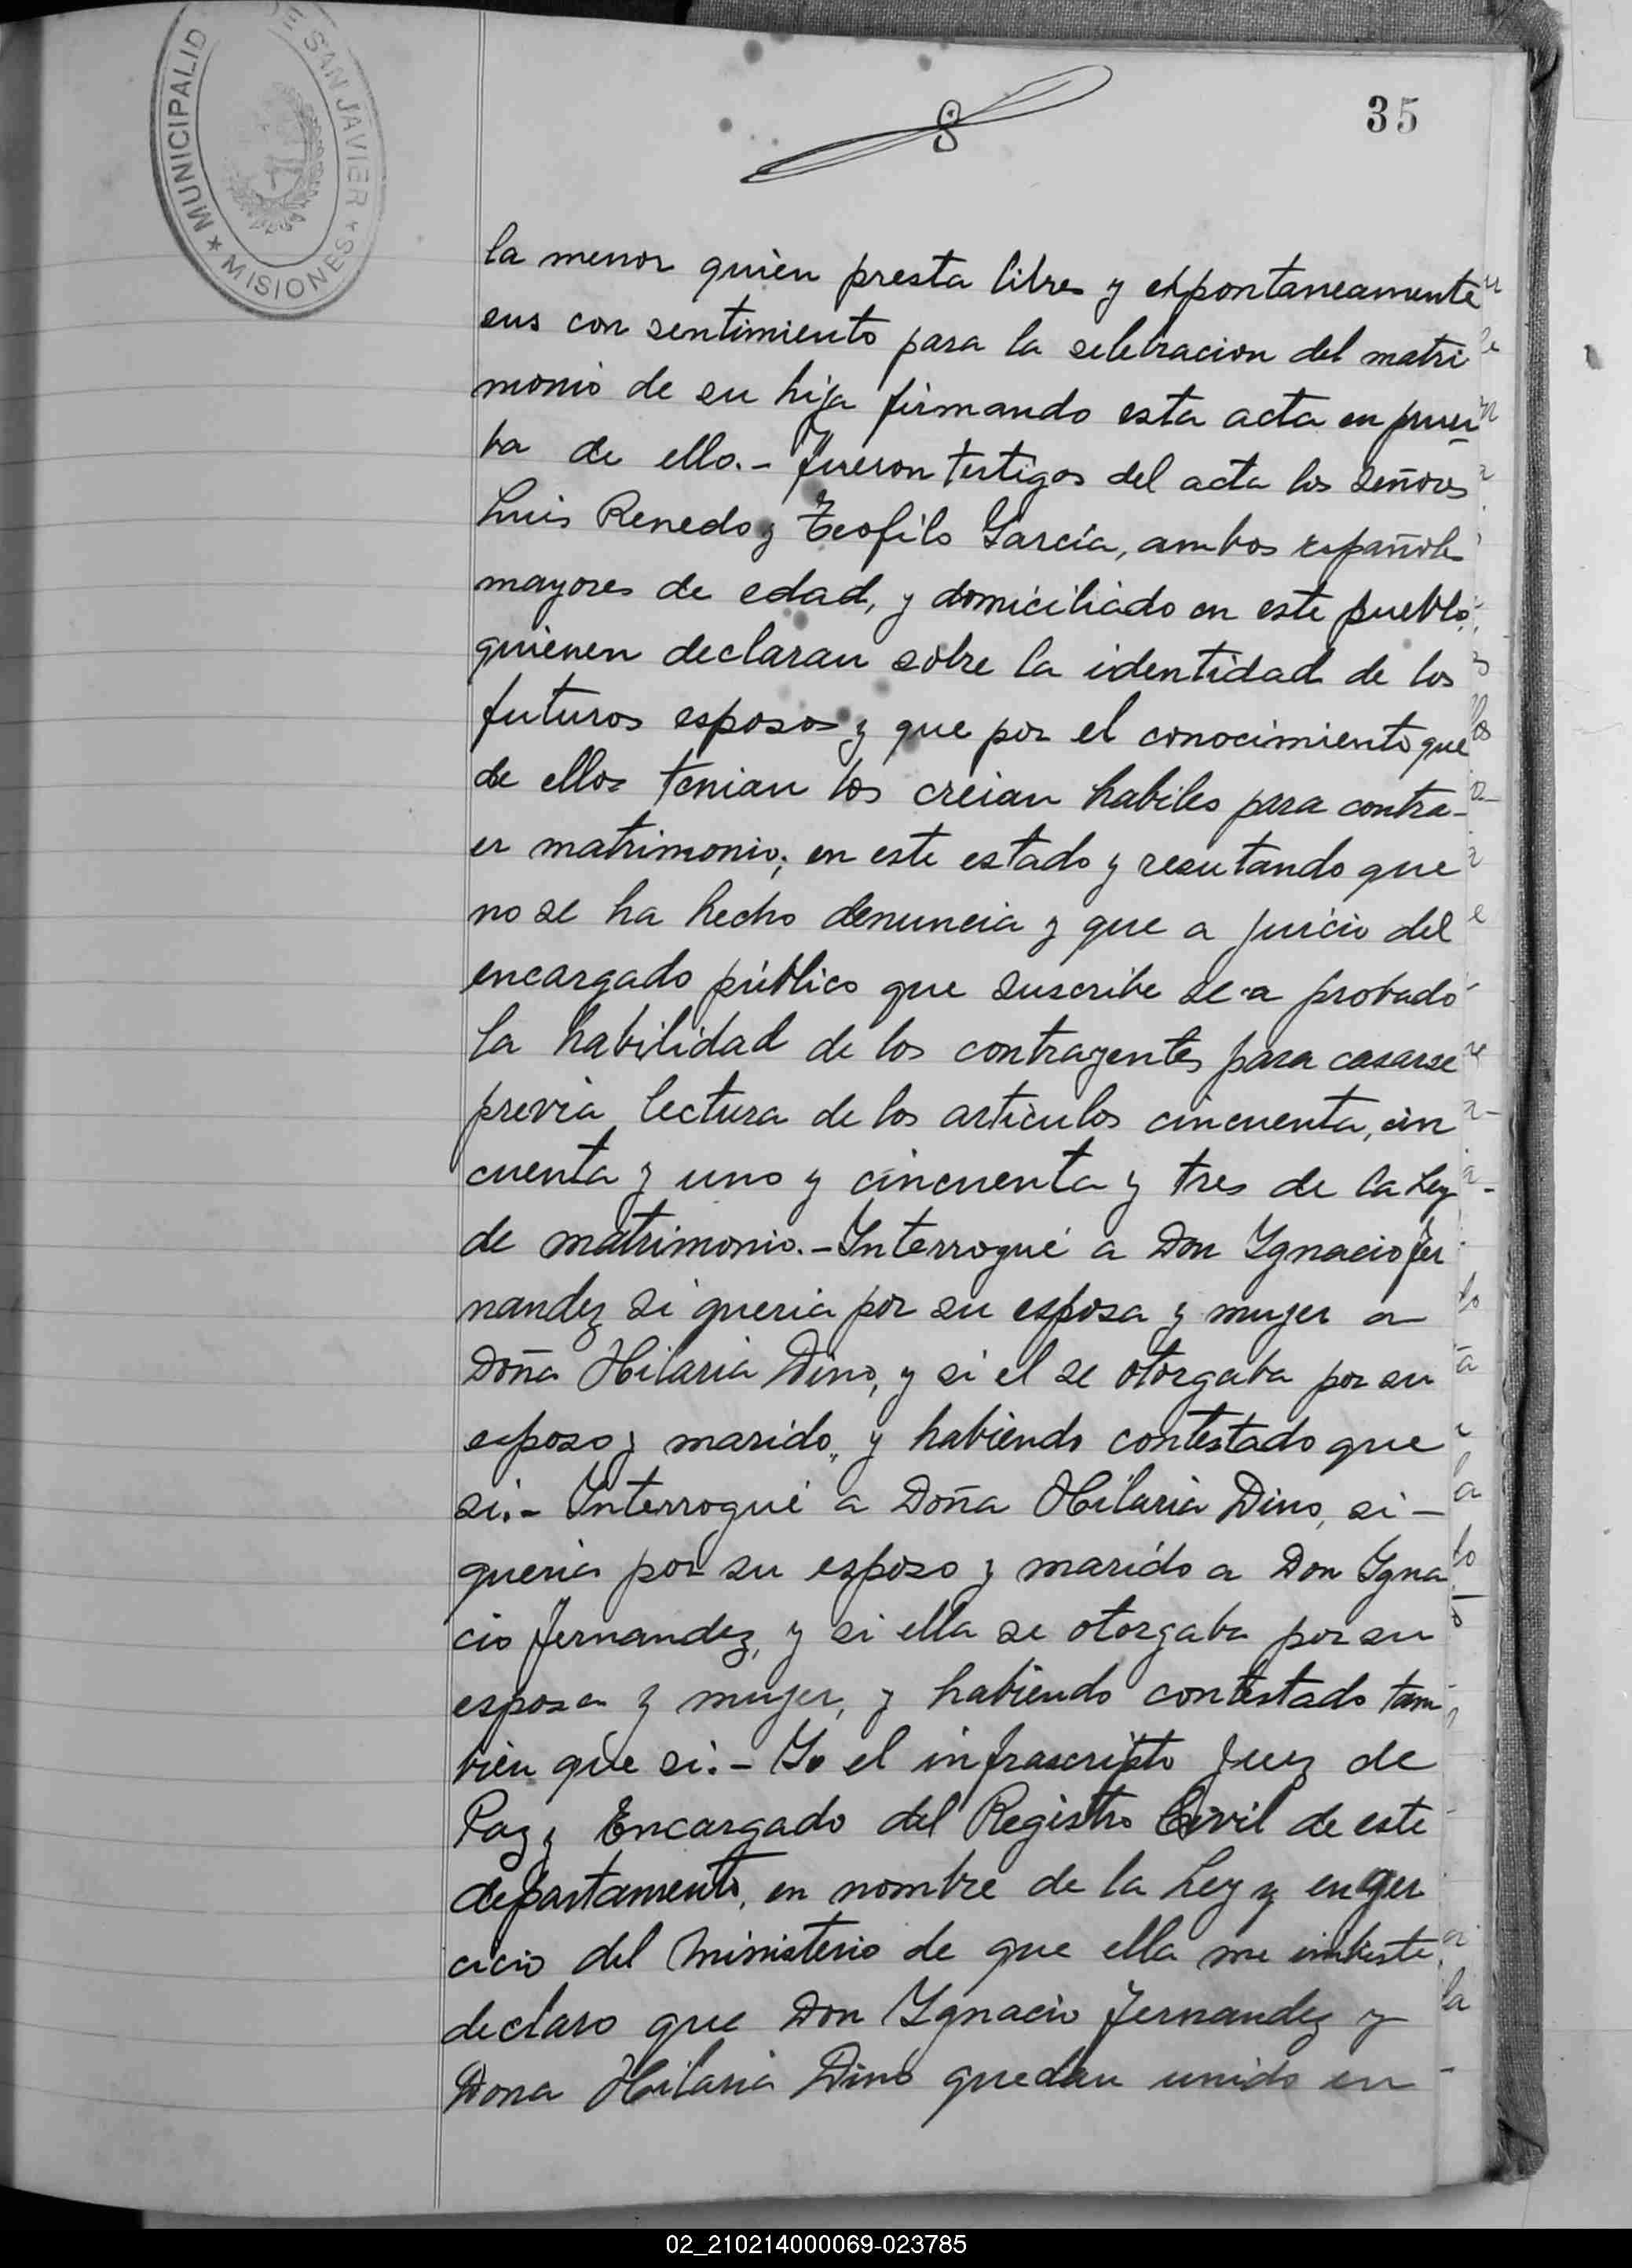 MUNICIPALID DE SAN JAVIER
* MISIONES *
35
la menor quien presta libre y expontaneamente
sus con sentimiento para la selebracion del matri
monio de su hija firmando esta acta en prue
ba de ello.- Fueron testigos del acta los señores
Luis Renedo y Teofilo García, ambos españoles
mayores de edad, y domiciliado en este pueblo,
quienen declaran sobre la identidad de los
futuros esposos y que por el conocimiento que
de ellos tenian los creian habiles para contra-
er matrimonio; en este estado y resutando que
no se ha hecho denuncia y que a juicio del
encargado público que suscribe se a probado
la habilidad de los contrayentes para casarse
previa lectura de los articulos cincuenta, cin
cuenta y uno y cincuenta y tres de la Ley
de matrimonio.- Interrogué a Don Ygnacio Fer
nandez si queria por su esposa y mujer a
Doña Hilaria Dino, y si el se otorgaba por su
esposo y marido, y habiendo contestado que
si.- Interrogué a Doña Hilaria Dino, si -
queria por su esposo y marido a Don Ygna
cio Fernandez, y si ella se otorgaba por su
esposa y mujer, y habiendo contestado tam
bien que si.- Yo el infrascripto Juez de
Paz y Encargado del Registro Civil de este
departamento, en nombre de la Ley y en ejer
cicio del Ministerio de que ella me imbiste,
declaro que Don Ygnacio Fernandez y
Dona Hilaria Dino quedan unido en
02_210214000069-023785